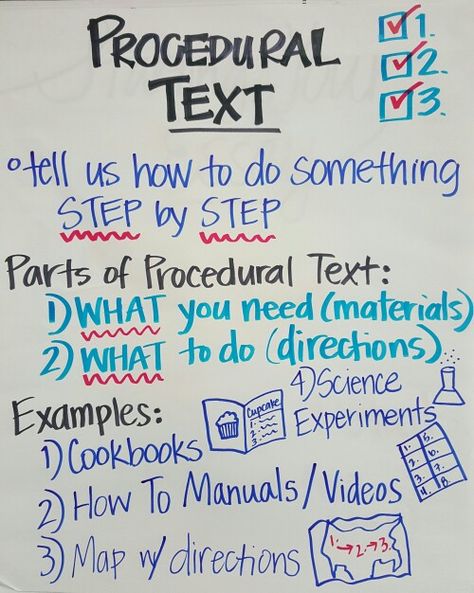 PROCEDURAL
TEXT
1.
2.
3.
°tell us how to do something
STEP by STEP
Parts of Procedural Text:
1) WHAT you need (materials)
2) WHAT to do (directions)
Examples:
1) Cookbooks
Cupcake
1.
2.
3.
4) Science
Experiments
2) How To Manuals/Videos
1. 5.
2. 6.
3. 7.
4. 8.
3) Map w/ directions
1.→2→3.